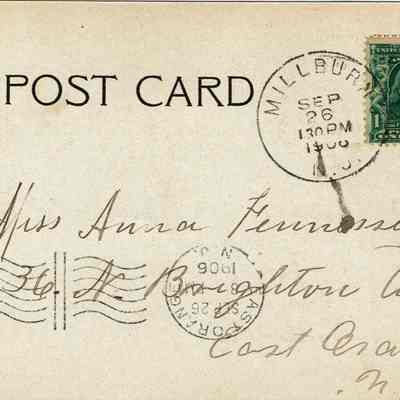 POST CARD
MILLBURN
SEP
26
1 30 PM
1906
N.J.
1
Miss Anna Fennesse
36 N. Brighton A
East Ora
N.
EAST ORANGE
N.J.
SEP 26
8
1906